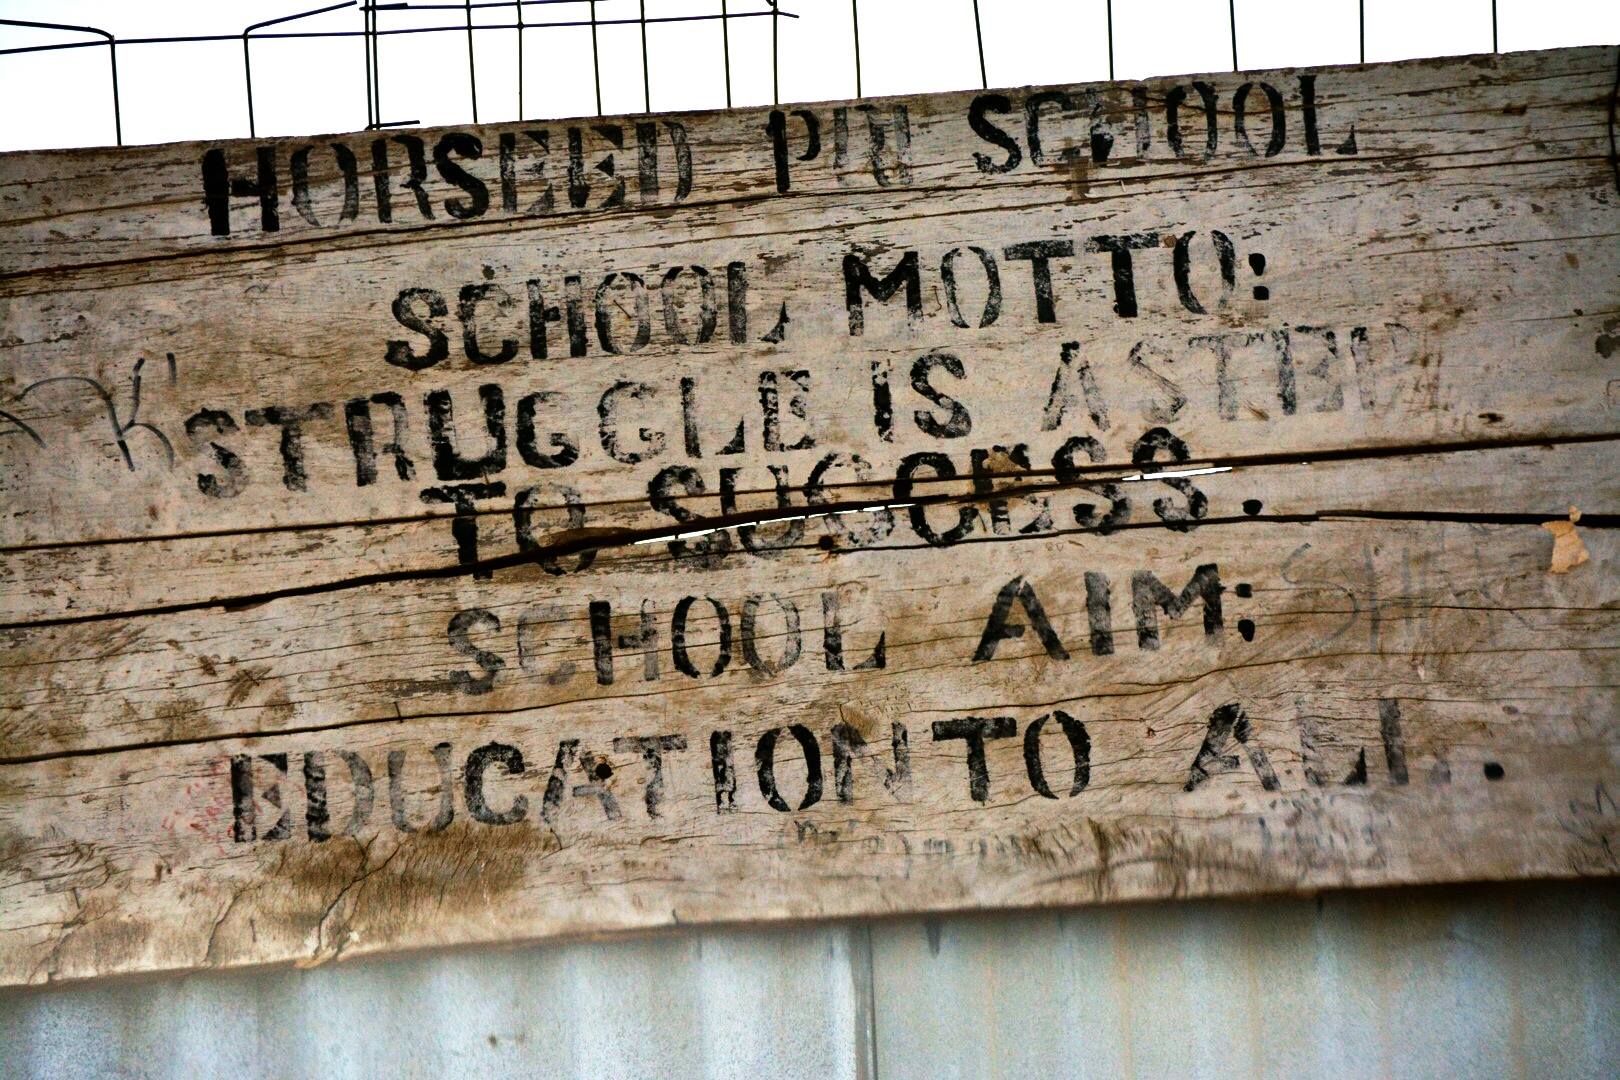 HORSEED PRI SCHOOL
SCHOOL MOTTO:
STRUGGLE IS A STEP
TO SUCCESS.
SCHOOL AIM:
EDUCATION TO ALL.